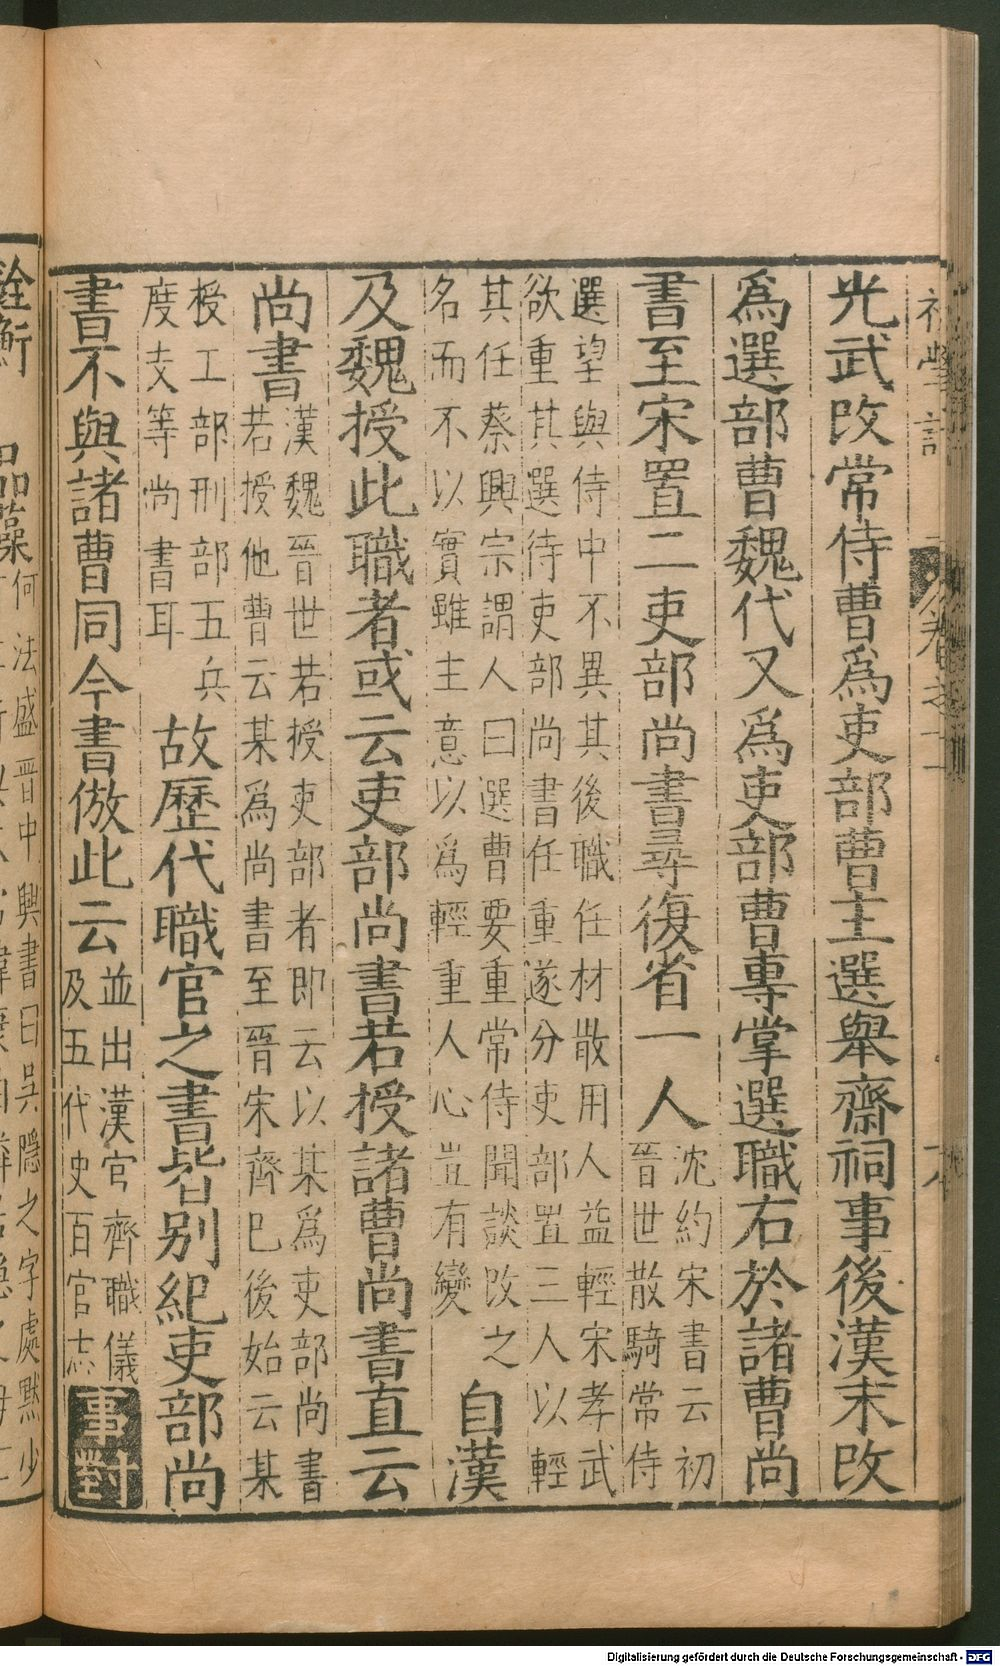 光武改常侍曹爲吏部曹主選舉齋祠事後漢末改
爲選部曹魏代又爲吏部曹專掌選職右於諸曹尚
書至宋置二吏部尚書尋復省一人
沈約宋書云初
晉世散騎常侍
選望與侍中不異其後職任材散用人益輕宋孝武
欲重其選待吏部尚書任重遂分吏部置三人以輕
其任蔡興宗謂人曰選曹要重常侍閒談改之
名而不以實雖主意以爲輕重人心豈有變
自漢
及魏授此職者或云吏部尚書若授諸曹尚書直云
尚書
漢魏晉世若授吏部者即云以某爲吏部尚書
若授他曹云某爲尚書至晉宋齊已後始云某
授工部刑部五兵
度支等尚書耳
故歷代職官之書皆別紀吏部尚
書不與諸曹同今書倣此云
並出漢官齊職儀
及五代史百官志
事對
銓衡 品藻
何法盛晉中興書曰吳隱之字處默少
Digitalisierung gefördert durch die Deutsche Forschungsgemeinschaft - DFG